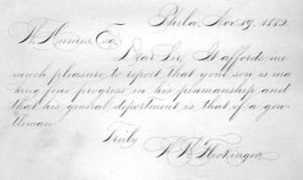 Phila, Nov. 19, 1882.
Esq.
Dear Sir, It affords me
much pleasure to report, that your son is ma
king fine progress in his penmanship and
that his general deportment is that of a gen
tleman.
Truly
Flickinger